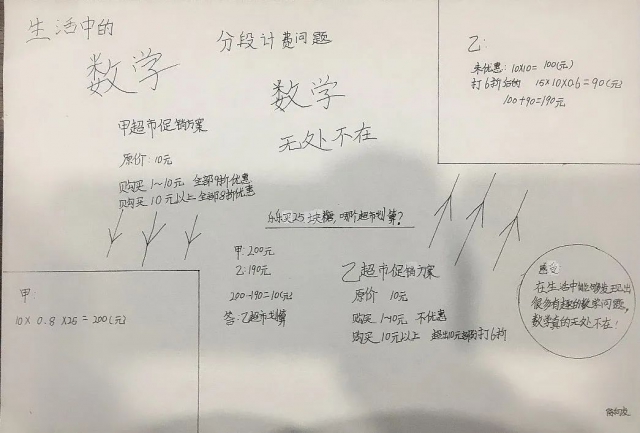 生活中的
数学
分段计费问题
数学
无处不在
甲超市促销方案
原价:10元
购买1~10元 全部9折优惠
购买10元以上全部8折优惠
乙:
未优惠:10×10=100(元)
打6折后的 15×10×0.6=90(元)
100+90=190元
乐乐买25块糖,哪个超市划算?
甲:
10×0.8×25=200(元)
甲:200元
乙:190元
200-190=10(元)
答:乙超市划算
乙超市促销方案
原价 10元
购买1~10元 不优惠
购买10元以上 超出10元部分打6折
感受
在生活中能够发现出
很多有趣的数学问题,
数学真的无处不在!